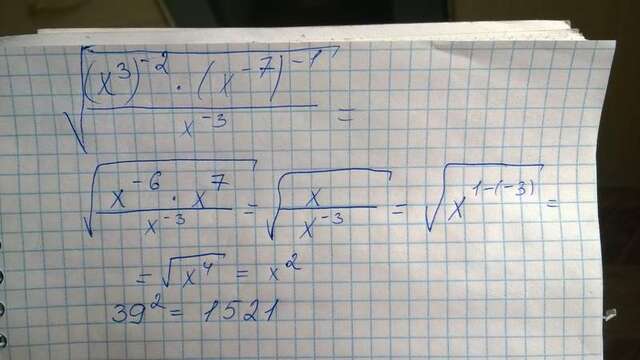 √((x³)⁻² · (x⁻⁷)⁻¹ / x⁻³) =
√(x⁻⁶ · x⁷ / x⁻³) = √(x / x⁻³) = √(x¹⁻⁽⁻³⁾) =
= √(x⁴) = x²
39² = 1521